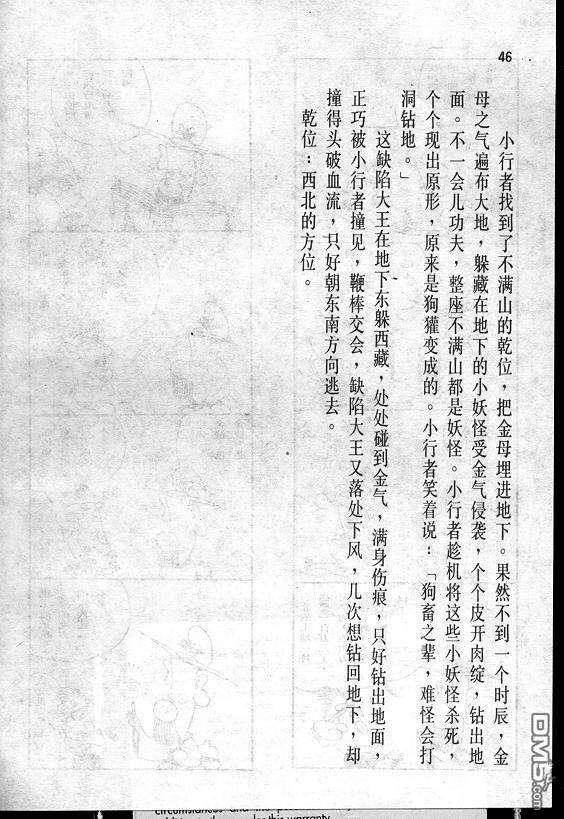 46
小行者找到了不满山的乾位，把金母埋进地下。果然不到一个时辰，金
母之气遍布大地，躲藏在地下的小妖怪受金气侵袭，个个皮开肉绽，钻出地
面。不一会儿功夫，整座不满山都是妖怪。小行者趁机将这些小妖怪杀死，
个个现出原形，原来是狗獾变成的。小行者笑着说：「狗畜之辈，难怪会打
洞钻地。」
这缺陷大王在地下东躲西藏，处处碰到金气，满身伤痕，只好钻出地面，
正巧被小行者撞见，鞭棒交会，缺陷大王又落处下风，几次想钻回地下，却
撞得头破血流，只好朝东南方向逃去。
乾位：西北的方位。
DM5.com
circumstances and the
warranty